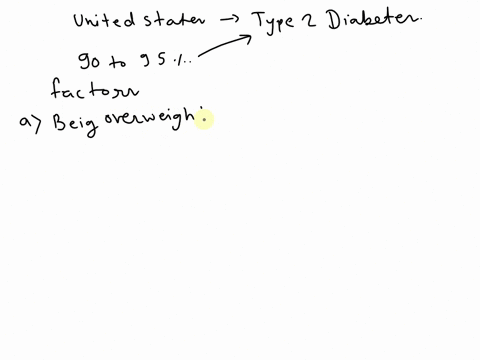 United states → Type 2 Diabetes.
90 to 95 %.
factors
a) Beig overweigh